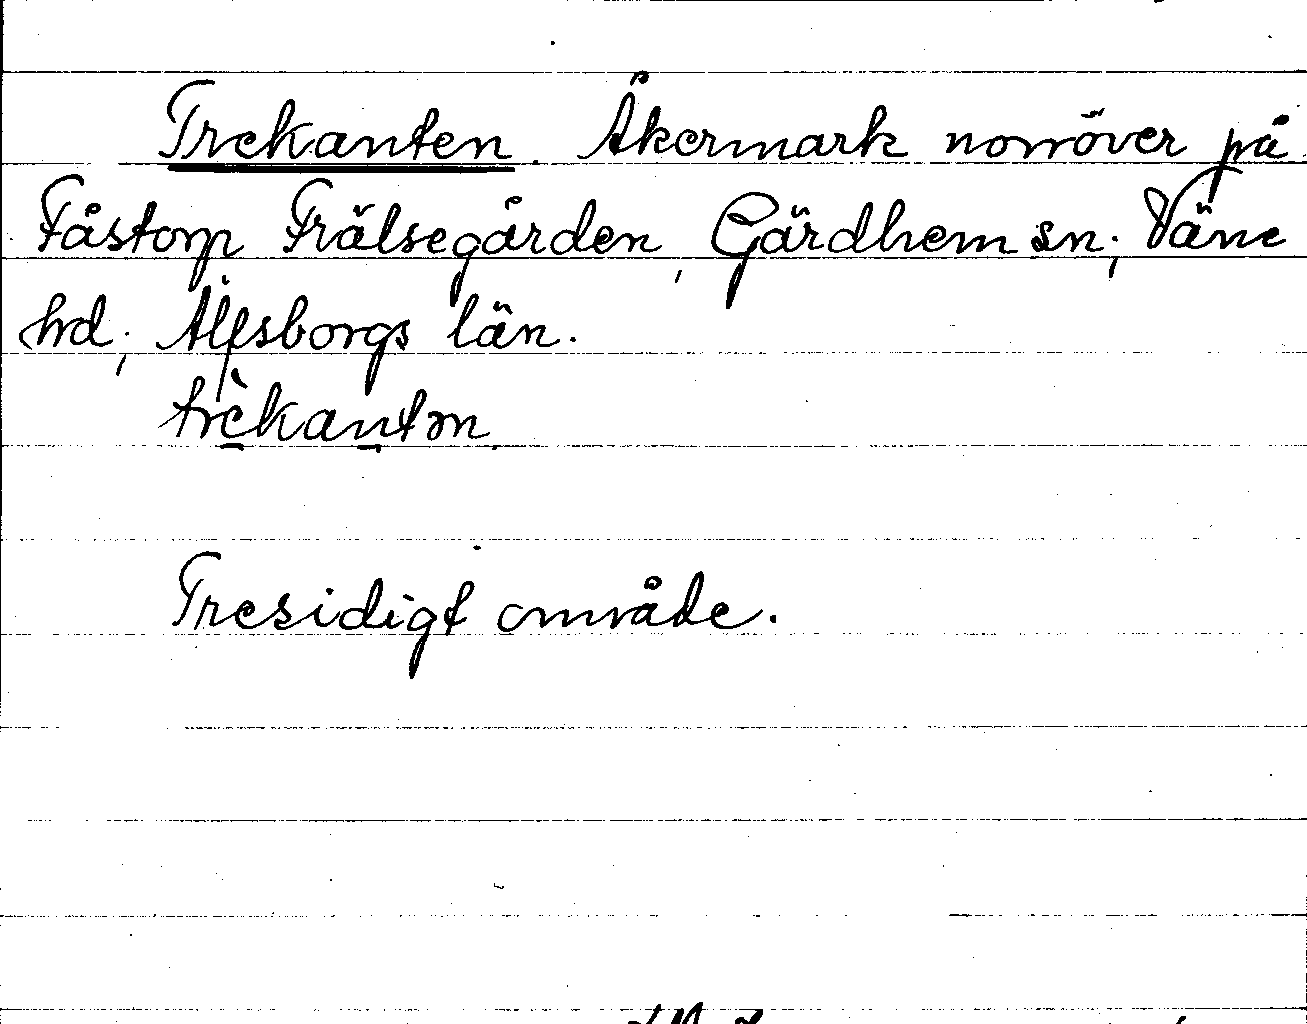 Trekanten. Åkermark norröver på
Fåstorp Frälsegården, Gärdhem sn; Väne
hd; Älfsborgs län.
trèkantən
Tresidigt område.